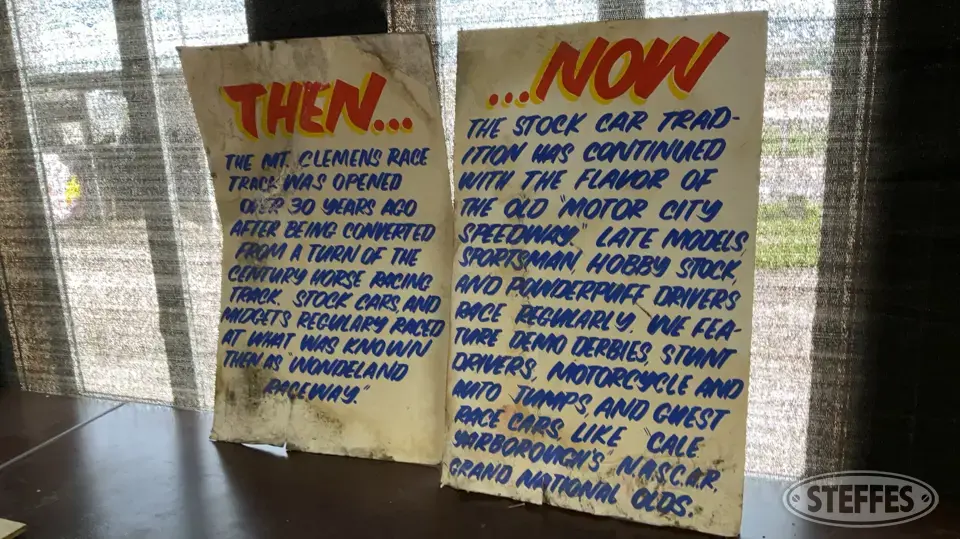 THEN...
THE MT. CLEMENS RACE
TRACK WAS OPENED
OVER 30 YEARS AGO
AFTER BEING CONVERTED
FROM A TURN OF THE
CENTURY HORSE RACING
TRACK. STOCK CARS, AND
MIDGETS REGULARY RACED
AT WHAT WAS KNOWN
THEN AS "WONDELAND
RACEWAY."
...NOW
THE STOCK CAR TRAD-
ITION HAS CONTINUED
WITH THE FLAVOR OF
THE OLD "MOTOR CITY
SPEEDWAY." LATE MODELS,
SPORTSMAN, HOBBY STOCK,
AND POWDERPUFF DRIVERS
RACE REGULARLY. WE FEA-
TURE DEMO DERBIES, STUNT
DRIVERS, MOTORCYCLE AND
AUTO JUMPS, AND GUEST
RACE CARS, LIKE "CALE
YARBOROUGH'S" N.A.S.C.A.R.
GRAND NATIONAL OLDS.
STEFFES